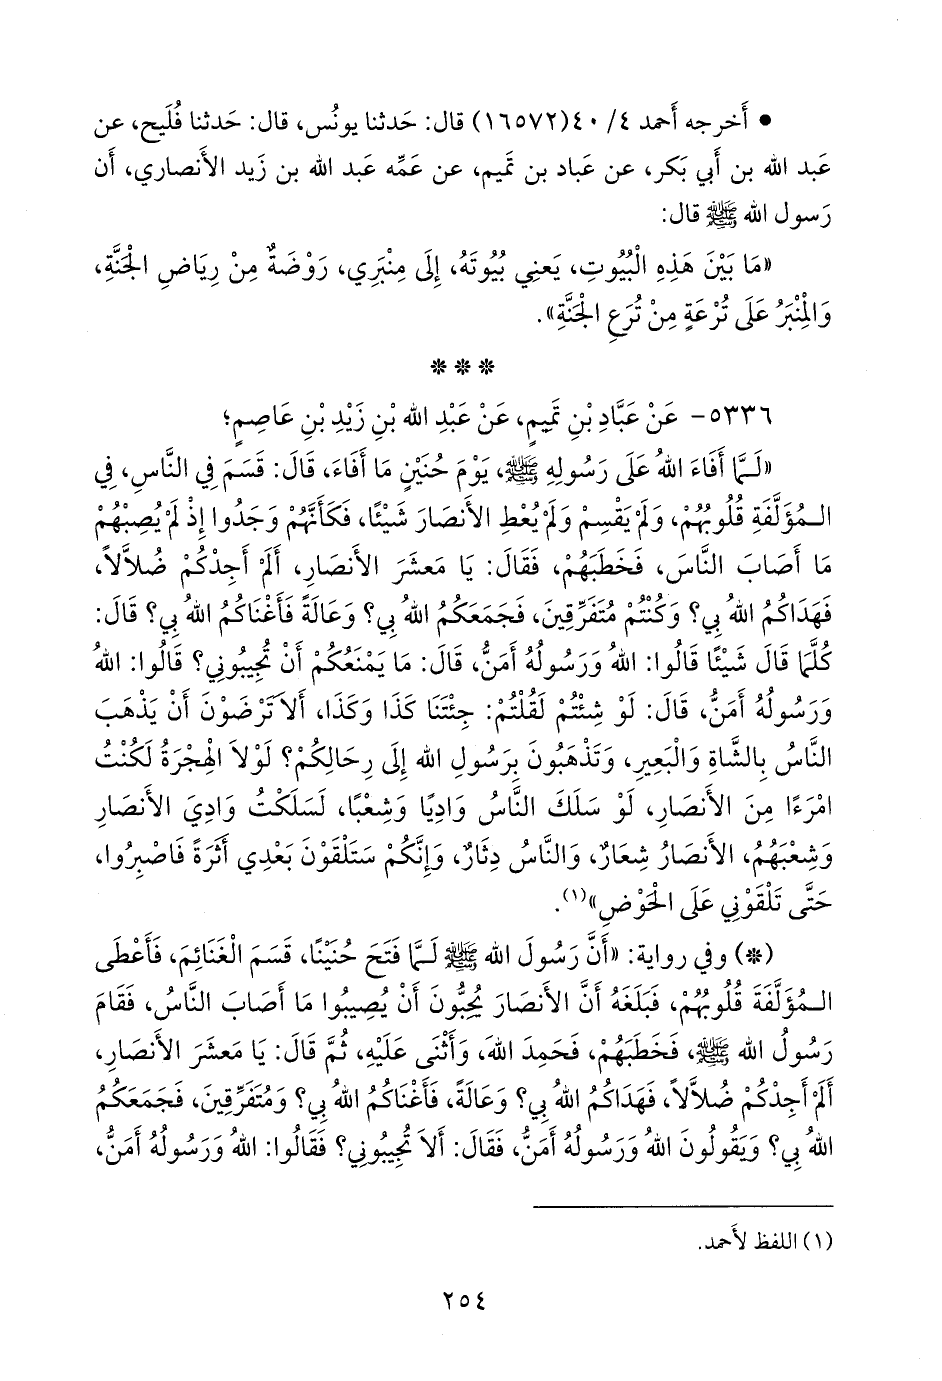 • أَخرجه أَحمد ٤/ ٤٠(١٦٥٧٢) قال: حَدثنا يونُس، قال: حَدثنا فُلَيح، عن
عَبد الله بن أَبي بَكر، عن عَباد بن تَميم، عن عَمِّه عَبد الله بن زَيد الأَنصاري، أَن
رَسول الله ﷺ قال:
«مَا بَيْنَ هَذِهِ الْبُيُوتِ، يَعنِي بُيُوتَهُ، إِلَى مِنْبَرِي، رَوْضَةٌ مِنْ رِيَاضِ الجَنَّةِ،
وَالْمِنْبَرُ عَلَى تُرْعَةٍ مِنْ تُرَعِ الجَنَّةِ».
* * *
٥٣٣٦- عَنْ عَبَّادِ بْنِ تَمِيمٍ، عَنْ عَبْدِ الله بْنِ زَيْدِ بْنِ عَاصِمٍ؛
«لَـمَّا أَفَاءَ اللهُ عَلَى رَسُولِهِ ﷺ، يَوْمَ حُنَيْنٍ مَا أَفَاءَ، قَالَ: قَسَمَ فِي النَّاسِ، فِي
الـمُؤَلَّفَةِ قُلُوبُهُمْ، وَلَمْ يَقْسِمْ وَلَمْ يُعْطِ الأَنصَارَ شَيْئًا، فَكَأَنَّهُمْ وَجَدُوا إِذْ لَمْ يُصِبْهُمْ
مَا أَصَابَ النَّاسَ، فَخَطَبَهُمْ، فَقَالَ: يَا مَعشَرَ الأَنصَارِ، أَلَمْ أَجِدْكُمْ ضُلاَّلاً،
فَهَدَاكُمُ اللهُ بِي؟ وَكُنْتُمْ مُتَفَرِّقِينَ، فَجَمَعَكُمُ اللهُ بِي؟ وَعَالَةً فَأَغْنَاكُمُ اللهُ بِي؟ قَالَ:
كُلَّمَا قَالَ شَيْئًا قَالُوا: اللهُ وَرَسُولُهُ أَمَنُّ، قَالَ: مَا يَمْنَعُكُمْ أَنْ تُجِيبُونِي؟ قَالُوا: اللهُ
وَرَسُولُهُ أَمَنُّ، قَالَ: لَوْ شِئْتُمْ لَقُلْتُمْ: جِئْتَنَا كَذَا وَكَذَا، أَلاَ تَرْضَوْنَ أَنْ يَذْهَبَ
النَّاسُ بِالشَّاةِ وَالْبَعِيرِ، وَتَذْهَبُونَ بِرَسُولِ الله إِلَى رِحَالِكُمْ؟ لَوْلاَ الْهِجْرَةُ لَكُنْتُ
امْرَءًا مِنَ الأَنْصَارِ، لَوْ سَلَكَ النَّاسُ وَادِيًا وَشِعْبًا، لَسَلَكْتُ وَادِيَ الأَنْصَارِ
وَشِعْبَهُمُ، الأَنْصَارُ شِعَارٌ، وَالنَّاسُ دِثَارٌ، وَإِنَّكُمْ سَتَلْقَوْنَ بَعْدِي أَثَرَةً فَاصْبِرُوا،
حَتَّى تَلْقَوْنِي عَلَى الْحَوْضِ»(١).
(*) وفي رواية: «أَنَّ رَسُولَ الله ﷺ لَـمَّا فَتَحَ حُنَيْنًا، قَسَمَ الْغَنَائِمَ، فَأَعْطَى
الـمُؤَلَّفَةَ قُلُوبُهُمْ، فَبَلَغَهُ أَنَّ الأَنْصَارَ يُحِبُّونَ أَنْ يُصِيبُوا مَا أَصَابَ النَّاسُ، فَقَامَ
رَسُولُ الله ﷺ، فَخَطَبَهُمْ، فَحَمِدَ اللهَ، وَأَثْنَى عَلَيْهِ، ثُمَّ قَالَ: يَا مَعشَرَ الأَنْصَارِ،
أَلَمْ أَجِدْكُمْ ضُلاَّلاً، فَهَدَاكُمُ اللهُ بِي؟ وَعَالَةً، فَأَغْنَاكُمُ اللهُ بِي؟ وَمُتَفَرِّقِينَ، فَجَمَعَكُمُ
اللهُ بِي؟ وَيَقُولُونَ اللهُ وَرَسُولُهُ أَمَنُّ، فَقَالَ: أَلاَ تُجِيبُونِي؟ فَقَالُوا: اللهُ وَرَسُولُهُ أَمَنُّ،
(١) اللفظ لأَحمد.
٢٥٤